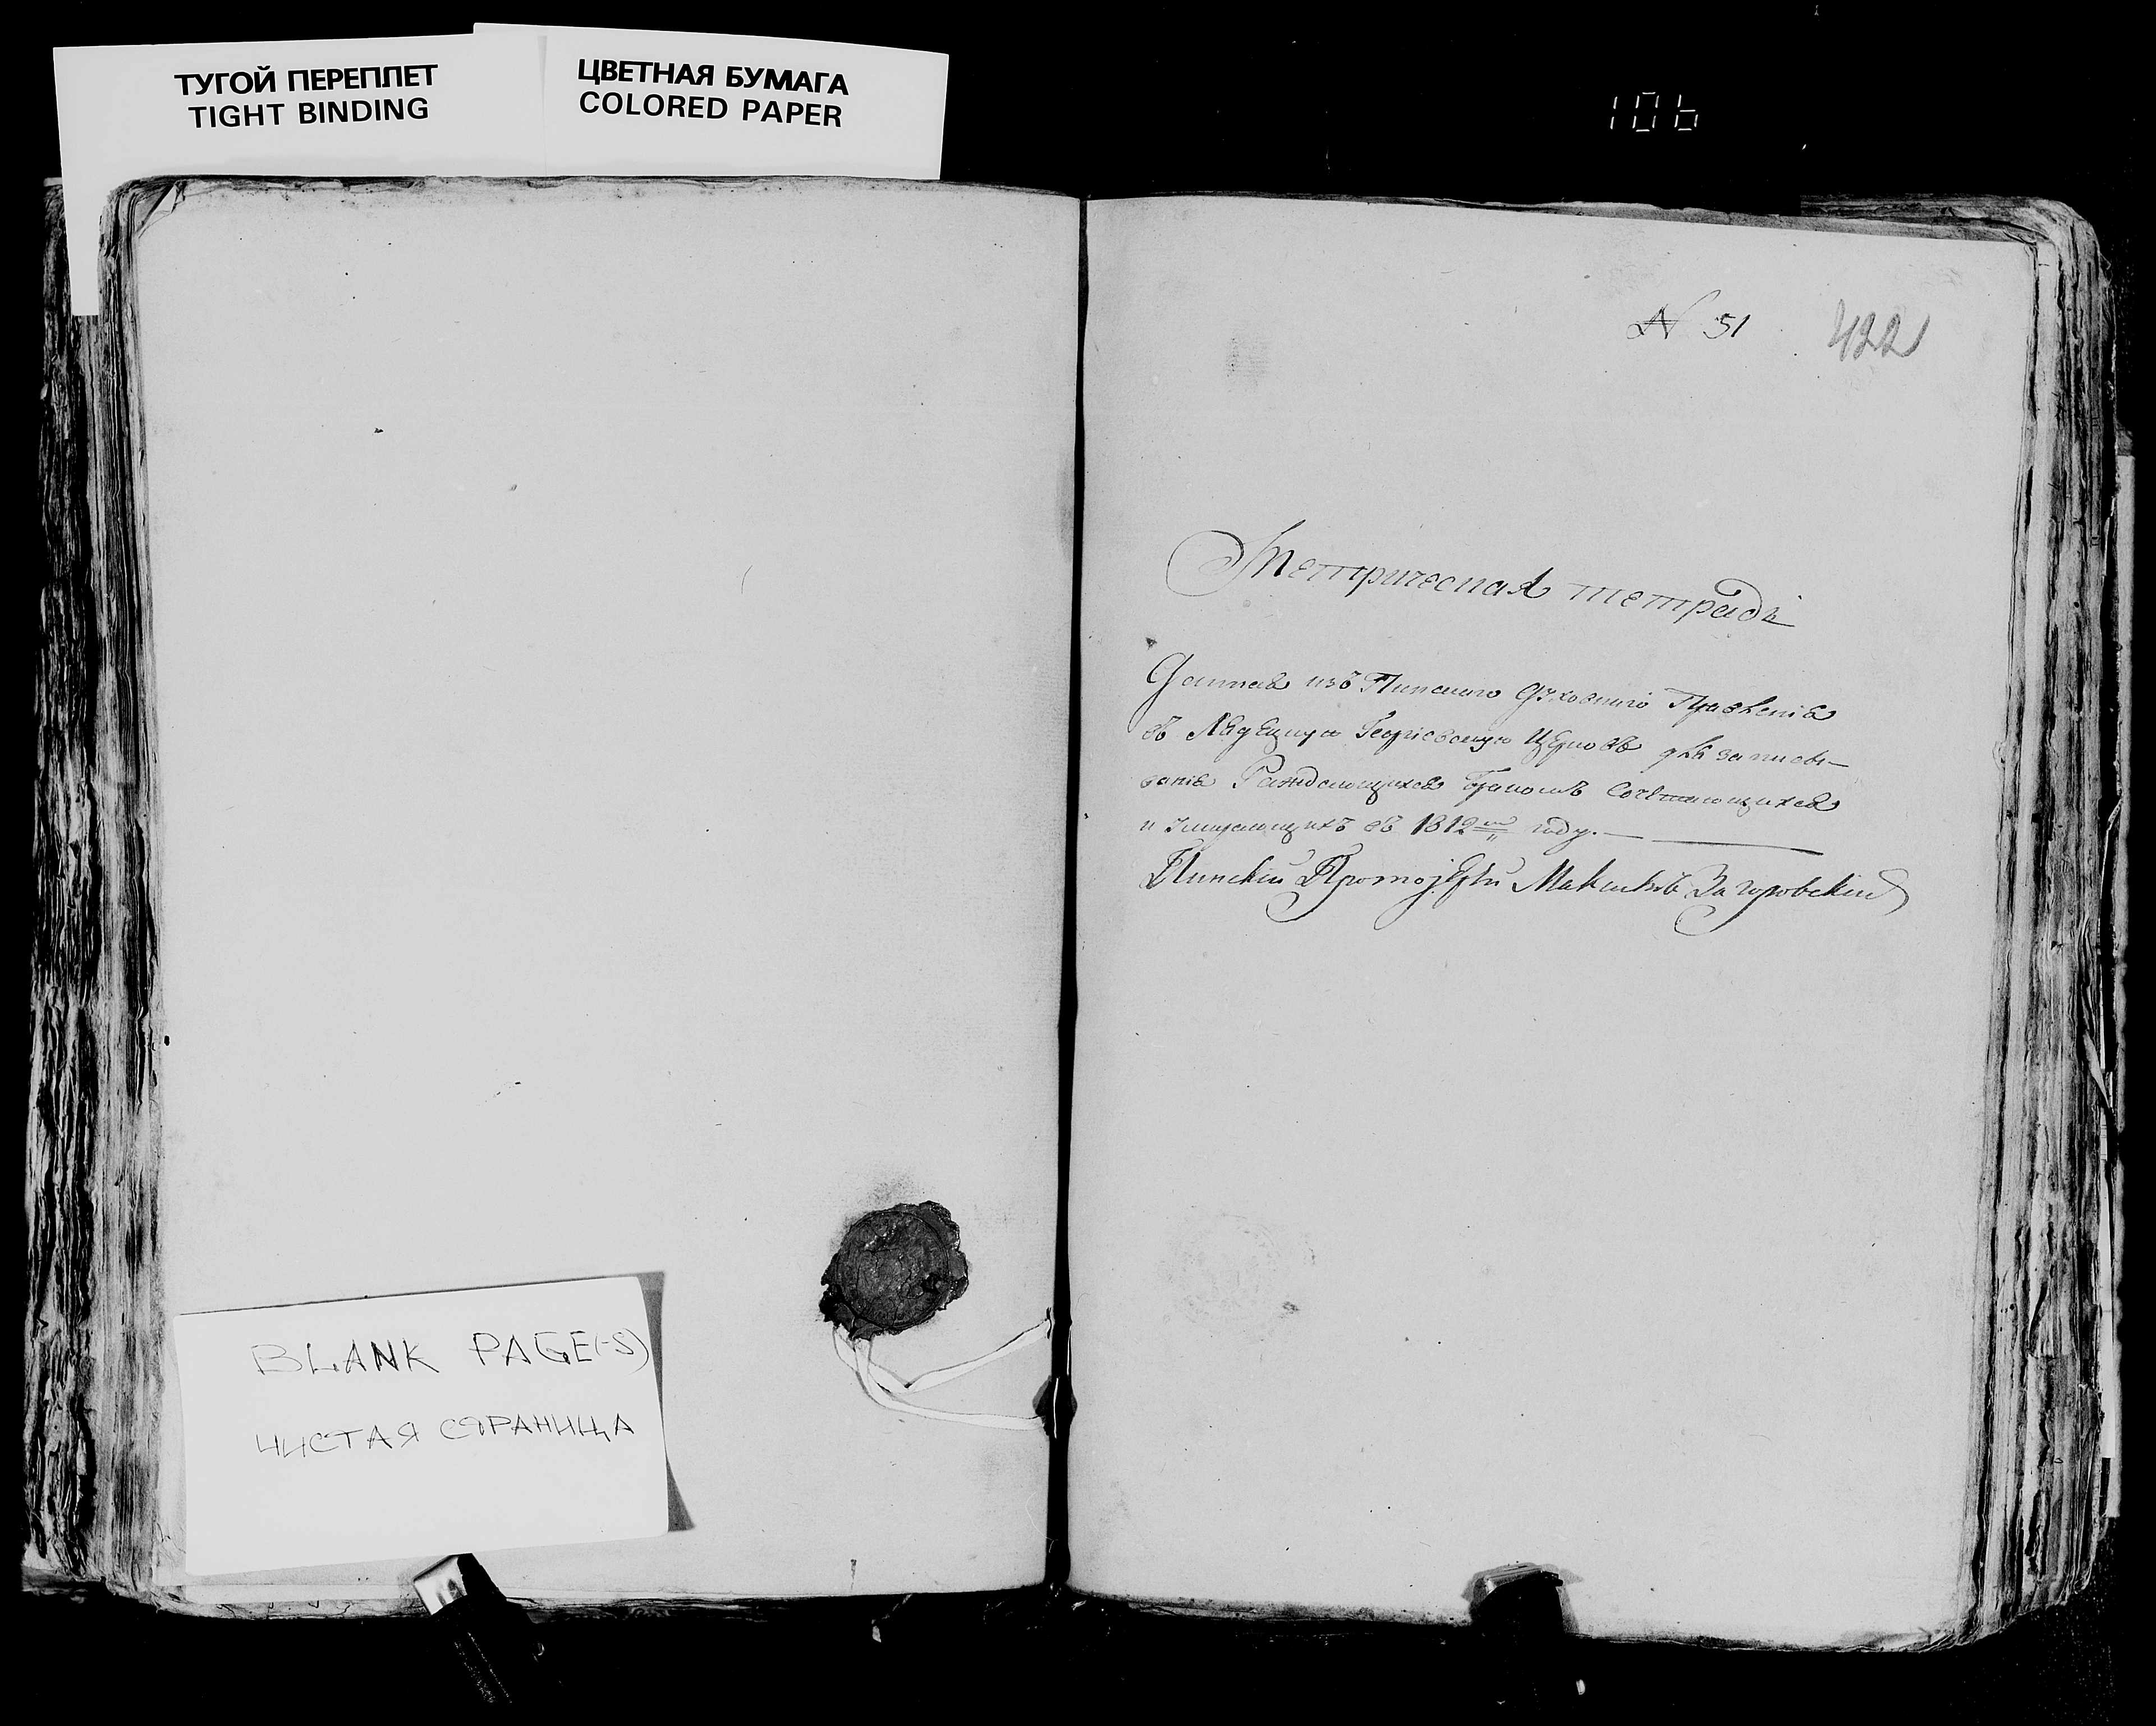 ТУГОЙ ПЕРЕПЛЕТ
TIGHT BINDING
ЦВЕТНАЯ БУМАГА
COLORED PAPER
106
N 51
422
Метрическая тетрадь
Данная изъ Пинского Духовнаго Правленія
въ Георгіевскую Церковь для записы-
ванія Раждающихся Бракомъ Сочетающихся
и умирающихъ въ 1812м году.
Пинскій Протоіерей Максимъ Загоровскій
BLANK PAGE(-S)
ЧИСТАЯ СТРАНИЦА